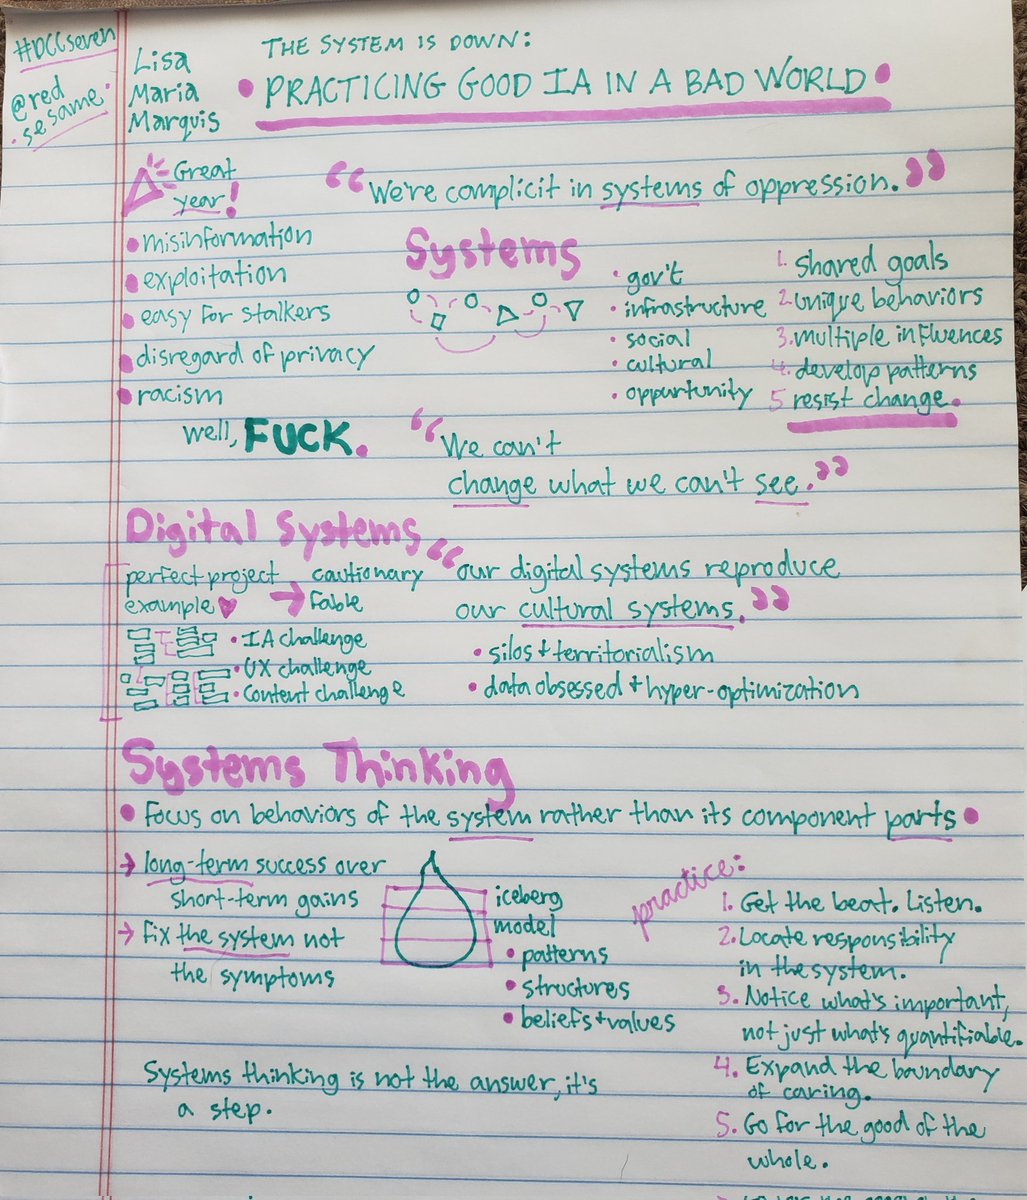 #DCCseven
@red
sesame.
Lisa
Maria
Marquis
THE SYSTEM IS DOWN:
• PRACTICING GOOD IA IN A BAD WORLD •
Great
year!
• misinformation
• exploitation
• easy for stalkers
• disregard of privacy
• racism
well, FUCK.
"We're complicit in systems of oppression."
Systems
• gov't
• infrastructure
• social
• cultural
• oppurtunity
1. shared goals
2. unique behaviors
3. multiple influences
4. develop patterns
5 resist change.
"We can't
change what we can't see."
Digital Systems
perfect project
example
→ cautionary
fable
• IA challenge
• UX challenge
• Content challenge
"our digital systems reproduce
our cultural systems."
• silos + territorialism
• data obsessed + hyper-optimization
Systems Thinking
• Focus on behaviors of the system rather than its component parts •
→ long-term success over
short-term gains
→ fix the system not
the symptoms
iceberg
model
• patterns
• structures
• beliefs + values
practice:
1. Get the beat. Listen.
2. Locate responsibility
in the system.
3. Notice what's important,
not just what's quantifiable.
4. Expand the boundary
of caring.
5. Go for the good of the
whole.
Systems thinking is not the answer, it's
a step.